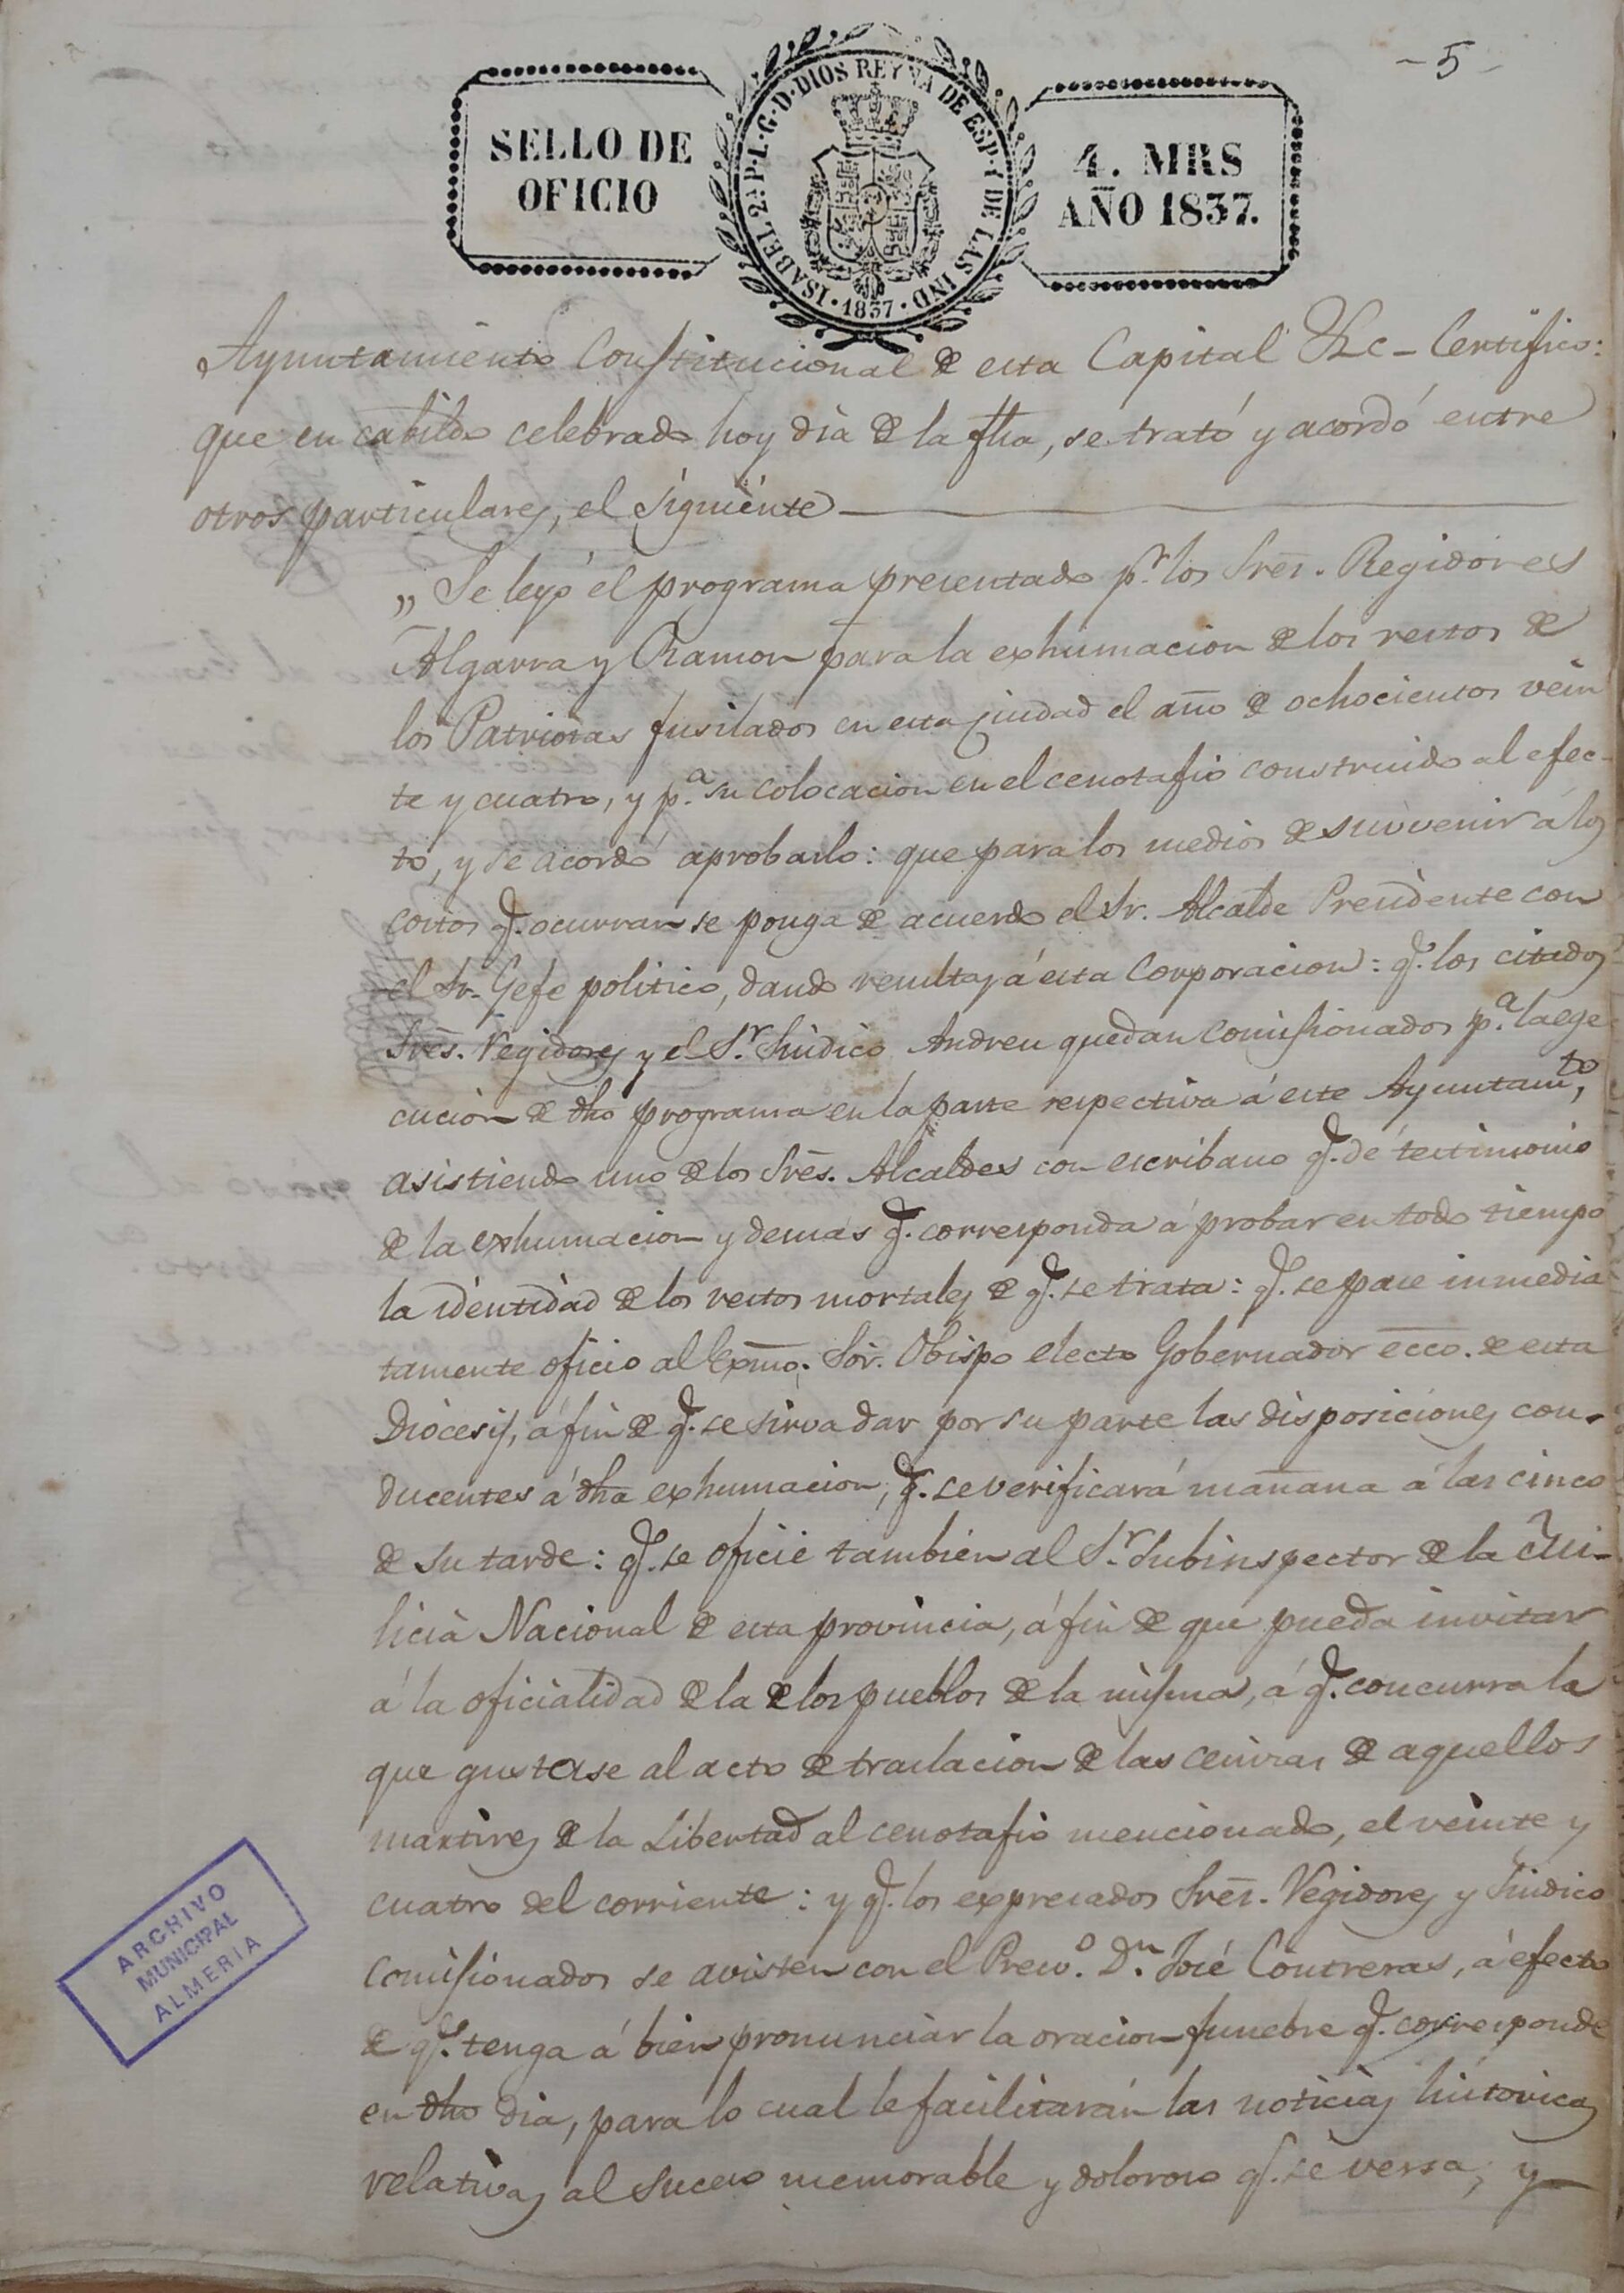 - 5 -
SELLO DE
OFICIO
ISABEL 2ª P. L. G. D. DIOS REYNA DE ESP. Y DE LAS IND.
1837
4. MRS
AÑO 1837.
Ayuntamiento Constitucional de esta Capital &c - Certifico:
que en cabildo celebrado hoy dia de la fha, se trató y acordó entre
otros particulares, el siguiente
„ Se leyó el programa presentado pr. los Sres. Regidores
Algarra y Ramon para la exhumacion de los restos de
los Patriotas fusilados en esta ciudad el año de ochocientos vein
te y cuatro, y pa. su colocacion en el cenotafio construido al efec-
to, y se acordó aprobarlo: que para los medios de suvvenir á los
costos q. ocurran se ponga de acuerdo el Sr. Alcalde Presidente con
el Sr. Gefe politico, dando resultas á esta Corporacion: q. los citados
Sres. Regidores y el Sr. Sindico Andreu quedan comisionados pa. la ege
cucion de dho programa en la parte respectiva á este Ayuntamto,
asistiendo uno de los Sres. Alcaldes con escribano q. dé testimonio
de la exhumacion y demas q. corresponda á probar en todo tiempo
la identidad de los restos mortales de q. se trata: q. se pase inmedia
tamente oficio al Exmo. Sor. Obispo electo Gobernador ecco. de esta
Diócesis, á fin de q. se sirva dar por su parte las disposiciones con-
ducentes á dha exhumacion, q. se verificará mañana á las cinco
de su tarde: q. se oficie tambien al Sr. Subinspector de la Mi-
licia Nacional de esta provincia, á fin de que pueda invitar
á la oficialidad de la de los pueblos de la misma, á q. concurra la
que gustase al acto de traslacion de las cenizas de aquellos
martires de la Libertad al cenotafio mencionado, el veinte y
cuatro del corriente: y q. los expresados Sres. Regidores y Sindico
comisionados se avisten con el Presvo. Dn. José Contreras, á efecto
de q. tenga á bien pronunciar la oracion funebre q. corresponde
en dho dia, para lo cual le facilitarán las noticias históricas
relativas al suceso memorable y doloroso q. se versa; y
ARCHIVO
MUNICIPAL
ALMERIA